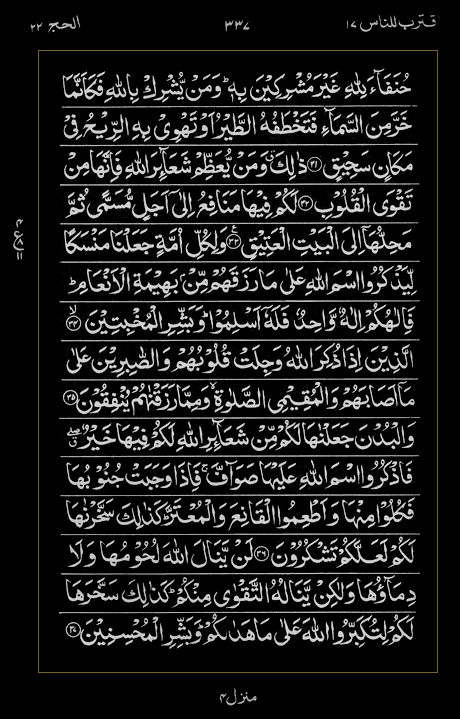 اقترب للناس ۱۷ ۳۳۷ الحج ۲۲
حُنَفَآءَ لِلّٰهِ غَيْرَ مُشْرِكِيْنَ بِهٖ ؕ وَمَنْ يُّشْرِكْ بِاللّٰهِ فَكَاَنَّمَا
خَرَّ مِنَ السَّمَآءِ فَتَخْطَفُهُ الطَّيْرُ اَوْ تَهْوِىْ بِهِ الرِّيْحُ فِىْ
مَكَانٍ سَحِيْقٍ ۳۱ ذٰلِكَ ۗ وَمَنْ يُّعَظِّمْ شَعَآئِرَ اللّٰهِ فَاِنَّهَا مِنْ
تَقْوَى الْقُلُوْبِ ۳۲ لَكُمْ فِيْهَا مَنَافِعُ اِلٰٓى اَجَلٍ مُّسَمًّى ثُمَّ
مَحِلُّهَاۤ اِلَى الْبَيْتِ الْعَتِيْقِ ۳۳ ع وَلِكُلِّ اُمَّةٍ جَعَلْنَا مَنْسَكًا
۴ ع ۸ ۱۱
لِّيَذْكُرُوا اسْمَ اللّٰهِ عَلٰى مَا رَزَقَهُمْ مِّنْۢ بَهِيْمَةِ الْاَنْعَامِ ؕ
فَاِلٰهُكُمْ اِلٰهٌ وَّاحِدٌ فَلَهٗۤ اَسْلِمُوْا ؕ وَبَشِّرِ الْمُخْبِتِيْنَ ۙ ۳۴
الَّذِيْنَ اِذَا ذُكِرَ اللّٰهُ وَجِلَتْ قُلُوْبُهُمْ وَالصّٰبِرِيْنَ عَلٰى
مَاۤ اَصَابَهُمْ وَالْمُقِيْمِى الصَّلٰوةِ ۙ وَمِمَّا رَزَقْنٰهُمْ يُنْفِقُوْنَ ۳۵
وَالْبُدْنَ جَعَلْنٰهَا لَكُمْ مِّنْ شَعَآئِرِ اللّٰهِ لَكُمْ فِيْهَا خَيْرٌ ۖ
فَاذْكُرُوا اسْمَ اللّٰهِ عَلَيْهَا صَوَآفَّ ۚ فَاِذَا وَجَبَتْ جُنُوْبُهَا
فَكُلُوْا مِنْهَا وَاَطْعِمُوا الْقَانِعَ وَالْمُعْتَرَّ ؕ كَذٰلِكَ سَخَّرْنٰهَا
لَكُمْ لَعَلَّكُمْ تَشْكُرُوْنَ ۳۶ لَنْ يَّنَالَ اللّٰهَ لُحُوْمُهَا وَلَا
دِمَآؤُهَا وَلٰكِنْ يَّنَالُهُ التَّقْوٰى مِنْكُمْ ؕ كَذٰلِكَ سَخَّرَهَا
لَكُمْ لِتُكَبِّرُوا اللّٰهَ عَلٰى مَا هَدٰىكُمْ ؕ وَبَشِّرِ الْمُحْسِنِيْنَ ۳۷
منزل ۴